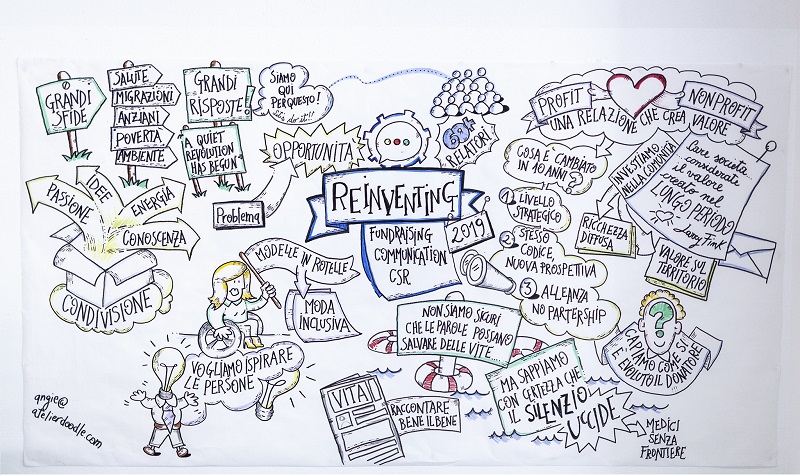 GRANDI
SFIDE
SALUTE
MIGRAZIONI
ANZIANI
POVERTA
AMBIENTE
GRANDI
RISPOSTE!
A QUIET
REVOLUTION
HAS BEGUN
SIAMO
QUI
PER QUESTO!
OPPORTUNITÀ
Problema
RELATORI
REINVENTING
2019
FUNDRAISING
COMMUNICATION
CSR
PROFIT
NON PROFIT
UNA RELAZIONE CHE CREA VALORE
COSA È CAMBIATO
IN 10 ANNI?
1 LIVELLO
STRATEGICO
2 STESSO
CODICE,
NUOVA PROSPETIVA
3 ALLEANZA
NO PARTERSHIP
INVESTIAMO
NELLA COMUNITÀ
RICCHEZZA
DIFFUSA
Care società
considerate
il valore
creato nel
LUNGO PERIODO
Larry Fink
VALORE SUL
TERRITORIO
PASSIONE
IDEE
ENERGIA
CONOSCENZA
CONDIVISIONE
MODELLE IN ROTELLE
MODA
INCLUSIVA
VOGLIAMO ISPIRARE
LE PERSONE
NON SIAMO SICURI
CHE LE PAROLE POSSANO
SALVARE DELLE VITE
MA SAPPIAMO
CON CERTEZZA CHE
IL SILENZIO
UCCIDE
MEDICI
SENZA
FRONTIERE
?
CAPIAMO COME SI
È EVOLUTO IL DONATORE
VITA
RACCONTARE
BENE IL BENE
angie@
atelierdoodle.com